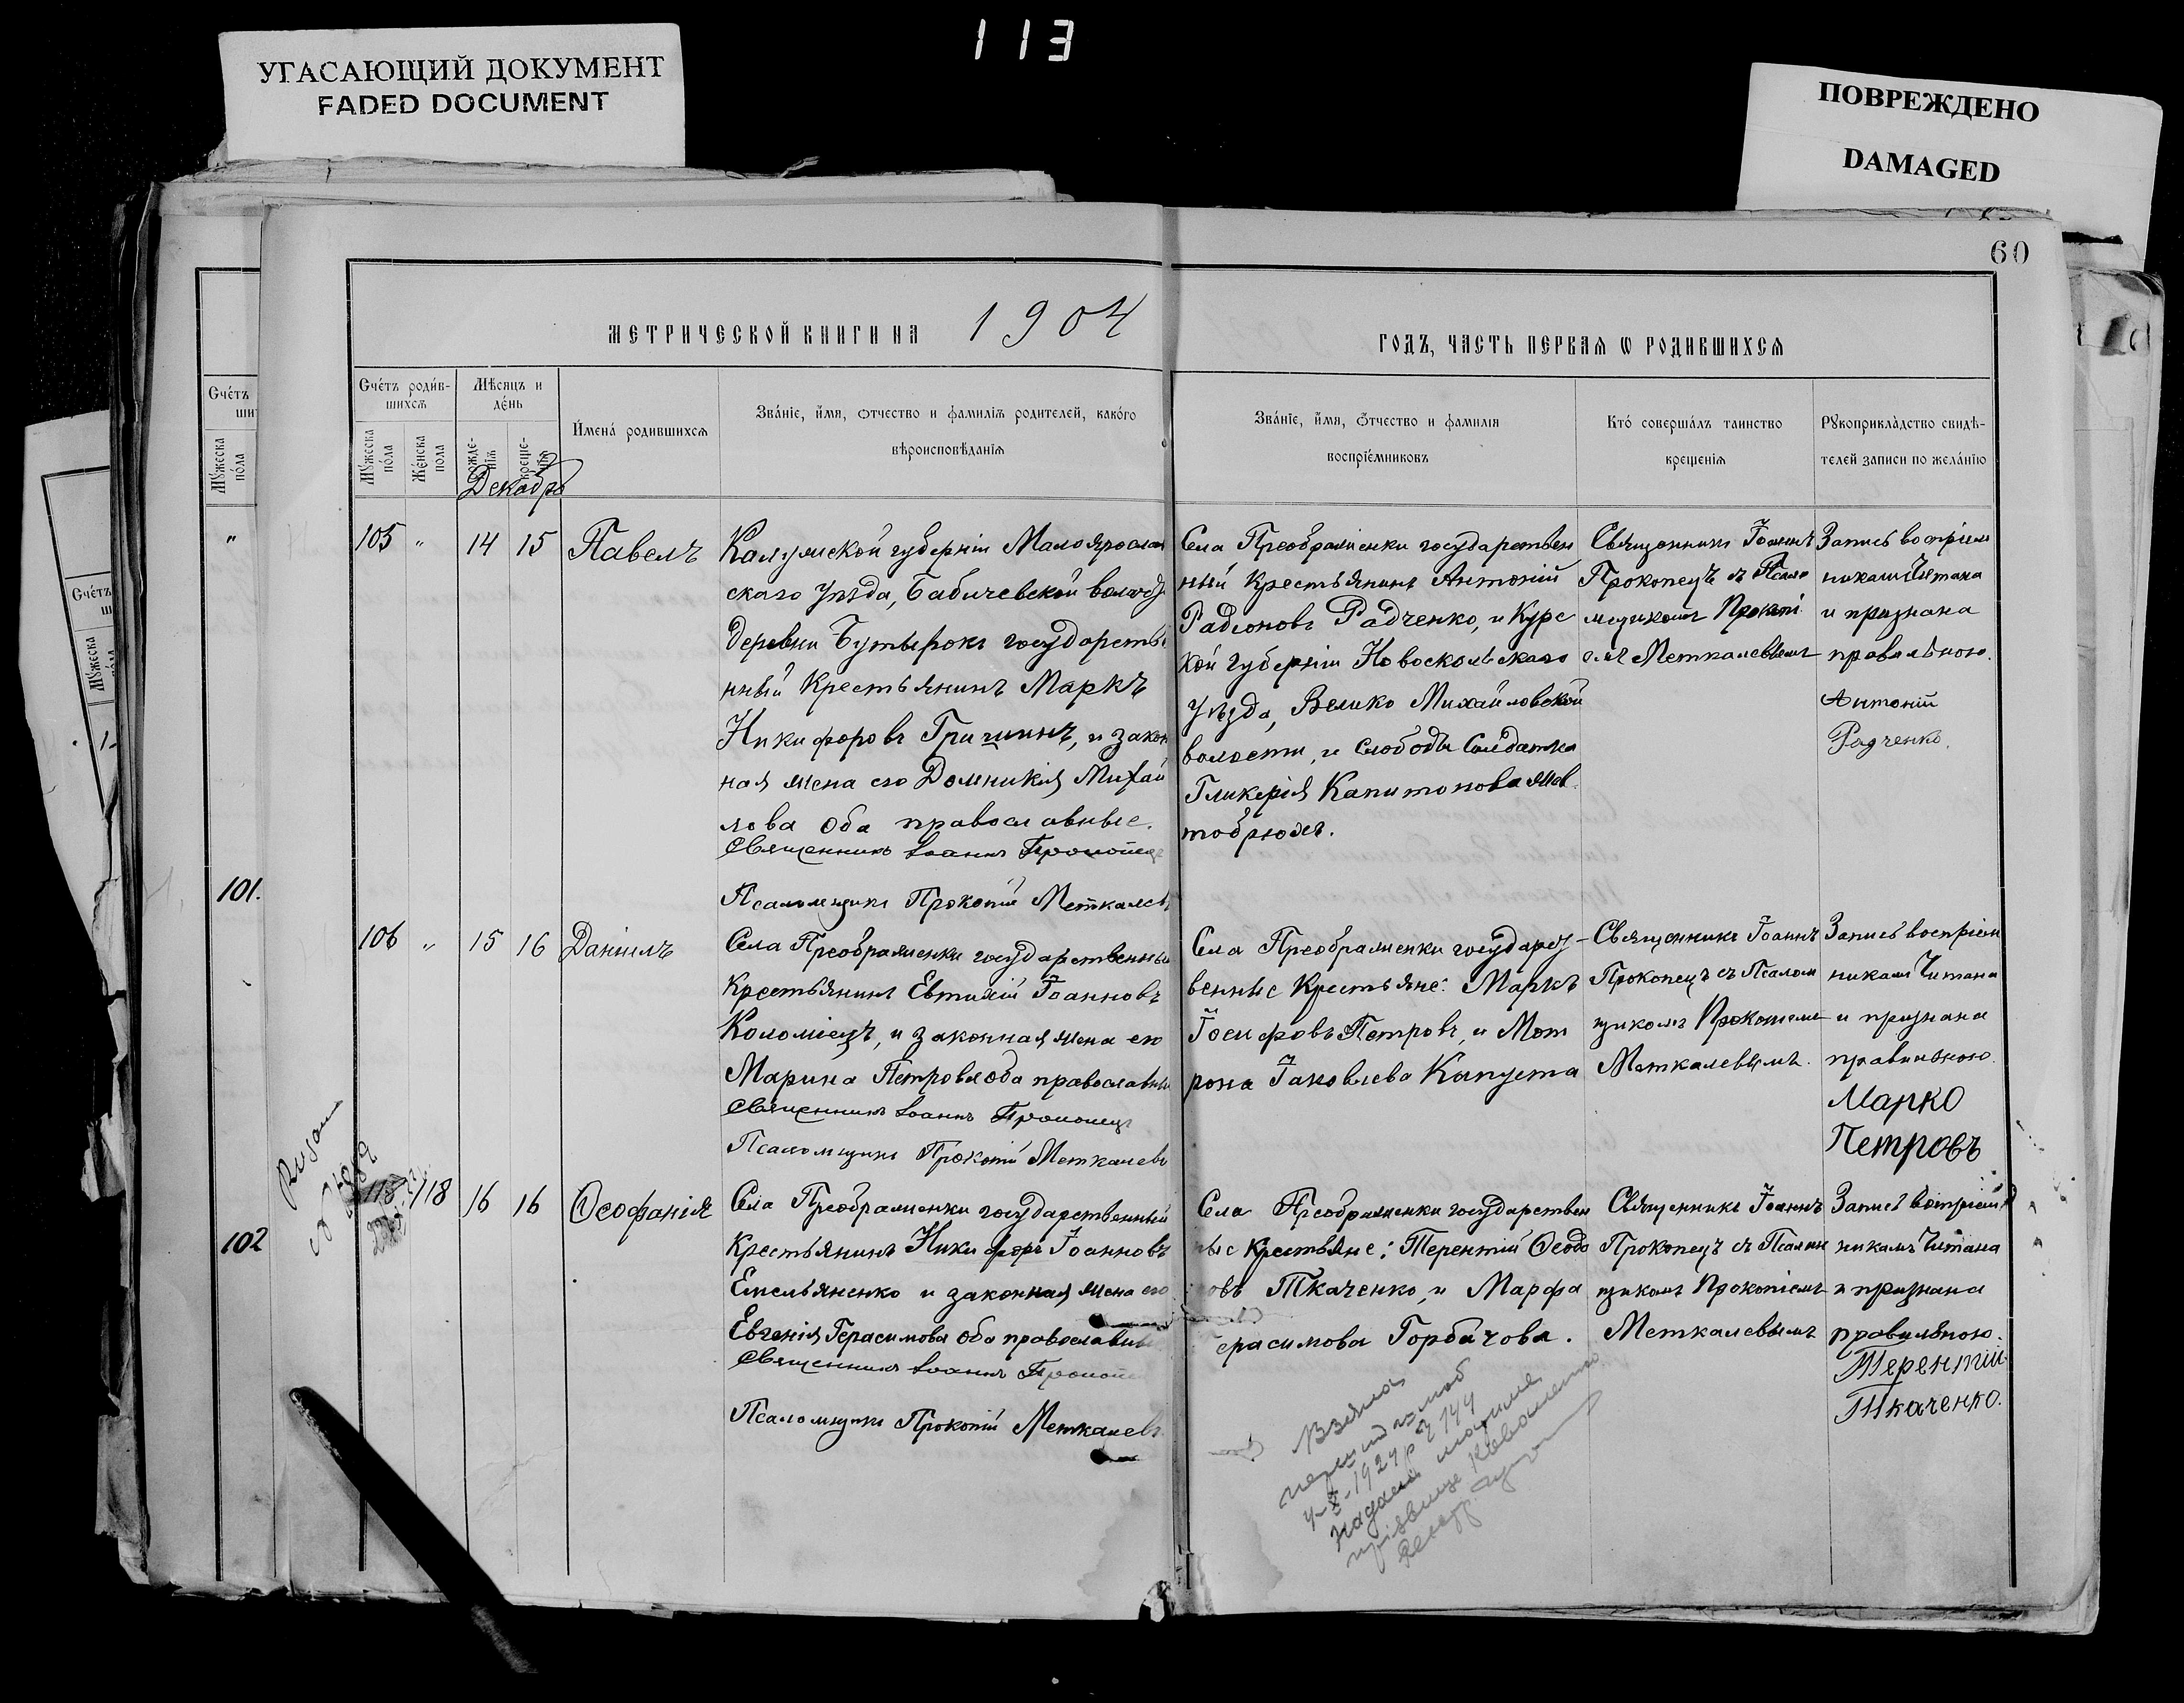 113
УГАСАЮЩИЙ ДОКУМЕНТ
FADED DOCUMENT
ПОВРЕЖДЕНО
DAMAGED
60
МЕТРИЧЕСКОЙ КНИГИ НА 1904
ГОДЪ, ЧАСТЬ ПЕРВАЯ Ѡ РОДИВШИХСЯ
Счетъ родив-
шихся
Мужеска пола
Женска пола
Мѣсяцъ и
день
рожде-
нія
креще-
нія
Имена родившихся
Званіе, имя, отчество и фамилія родителей, какого
вѣроисповѣданія
Званіе, имя, отчество и фамилія
воспріемниковъ
Кто совершалъ таинство
крещенія
Рукоприкладство свидѣ-
телей записи по желанію
Декабрь
105 " 14 15 Павелъ
Калужской губерніи Малоярослав
скаго уѣзда, Бабичевской волости
деревни Бутырокъ государствен
ный крестьянинъ Маркъ
Никифоровъ Гришинъ, и закон
ная жена его Домникія Михай
лова оба православные.
Священникъ Іоаннъ Прокопец
Псаломщикъ Прокопій Меткалевъ
Села Преображенки государствен
ный крестьянинъ Антоній
Радіоновъ Радченко, и Курс
кой губерніи Новоскольскаго
уѣзда, Велико Михайловской
волости, и слободы солдатка
Гликерія Капитонова
Священникъ Іоаннъ
Прокопецъ съ Псало
мщикомъ Прокопі
емъ Меткалевымъ
Запись воспріем
никамъ Читана
и признана
правильною.
Антоній
Радченко.
101.
106 " 15 16 Даніилъ
Села Преображенки государственный
крестьянинъ Евтихій Іоанновъ
Коломіецъ, и законная жена его
Марина Петрова оба православные
Священникъ Іоаннъ Прокопец
Псаломщикъ Прокопій Меткалевъ
Села Преображенки государст-
венные крестьяне: Маркъ
Іосифовъ Петровъ, и Мот
рона Іаковлева Капуста
Священникъ Іоаннъ
Прокопецъ съ Псалом
щикомъ Прокопіемъ
Меткалевымъ.
Запись воспріем
никамъ Читана
и признана
правильною.
Марко
Петровъ
102
118 16 16 Ѳеофанія
Села Преображенки государственный
крестьянинъ Никифоръ Іоанновъ
Емельяненко и законная жена его
Евгенія Герасимова оба православные
Священникъ Іоаннъ Прокопец
Псаломщикъ Прокопій Меткалевъ
Села Преображенки государствен
ные крестьяне: Терентій Ѳеодо
ровъ Ткаченко, и Марфа
Герасимова Горбачова.
Священникъ Іоаннъ
Прокопецъ съ Псалом
щикомъ Прокопіемъ
Меткалевымъ
Запись воспріем
никамъ Читана
и признана
правильною.
Терентій
Ткаченко.
Взяла
1924 р. 144
прізвище